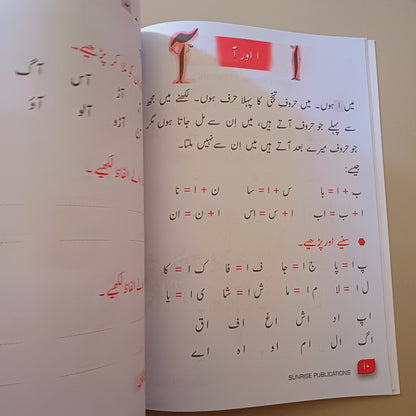 ملا کر پڑھیے۔
آس آگ
آلو آؤ
آڑو
الفاظ لکھیے۔
لکھیے۔
ا آ
ا اور آ
میں ا ہوں۔ میں حروفِ تہجّی کا پہلا حرف ہوں۔ لکھنے میں مجھ
سے پہلے جو حروف آتے ہیں، میں اِن سے مل جاتا ہوں مگر
جو حروف میرے بعد آتے ہیں میں اِن سے نہیں ملتا۔
جیسے:
ب + ا = با س + ا = سا ن + ا = نا
ا + ب = اب ا + س = اس ا + ن = ان
سنیے اور پڑھیے۔
پ ا = پا ج ا = جا ف ا = فا ک ا = کا
ل ا = لا م ا = ما ش ا = شا ی ا = یا
اپ اد اش اغ اف اق
اگ ال ام او اہ اے
۱۰
SUNRISE PUBLICATIONS